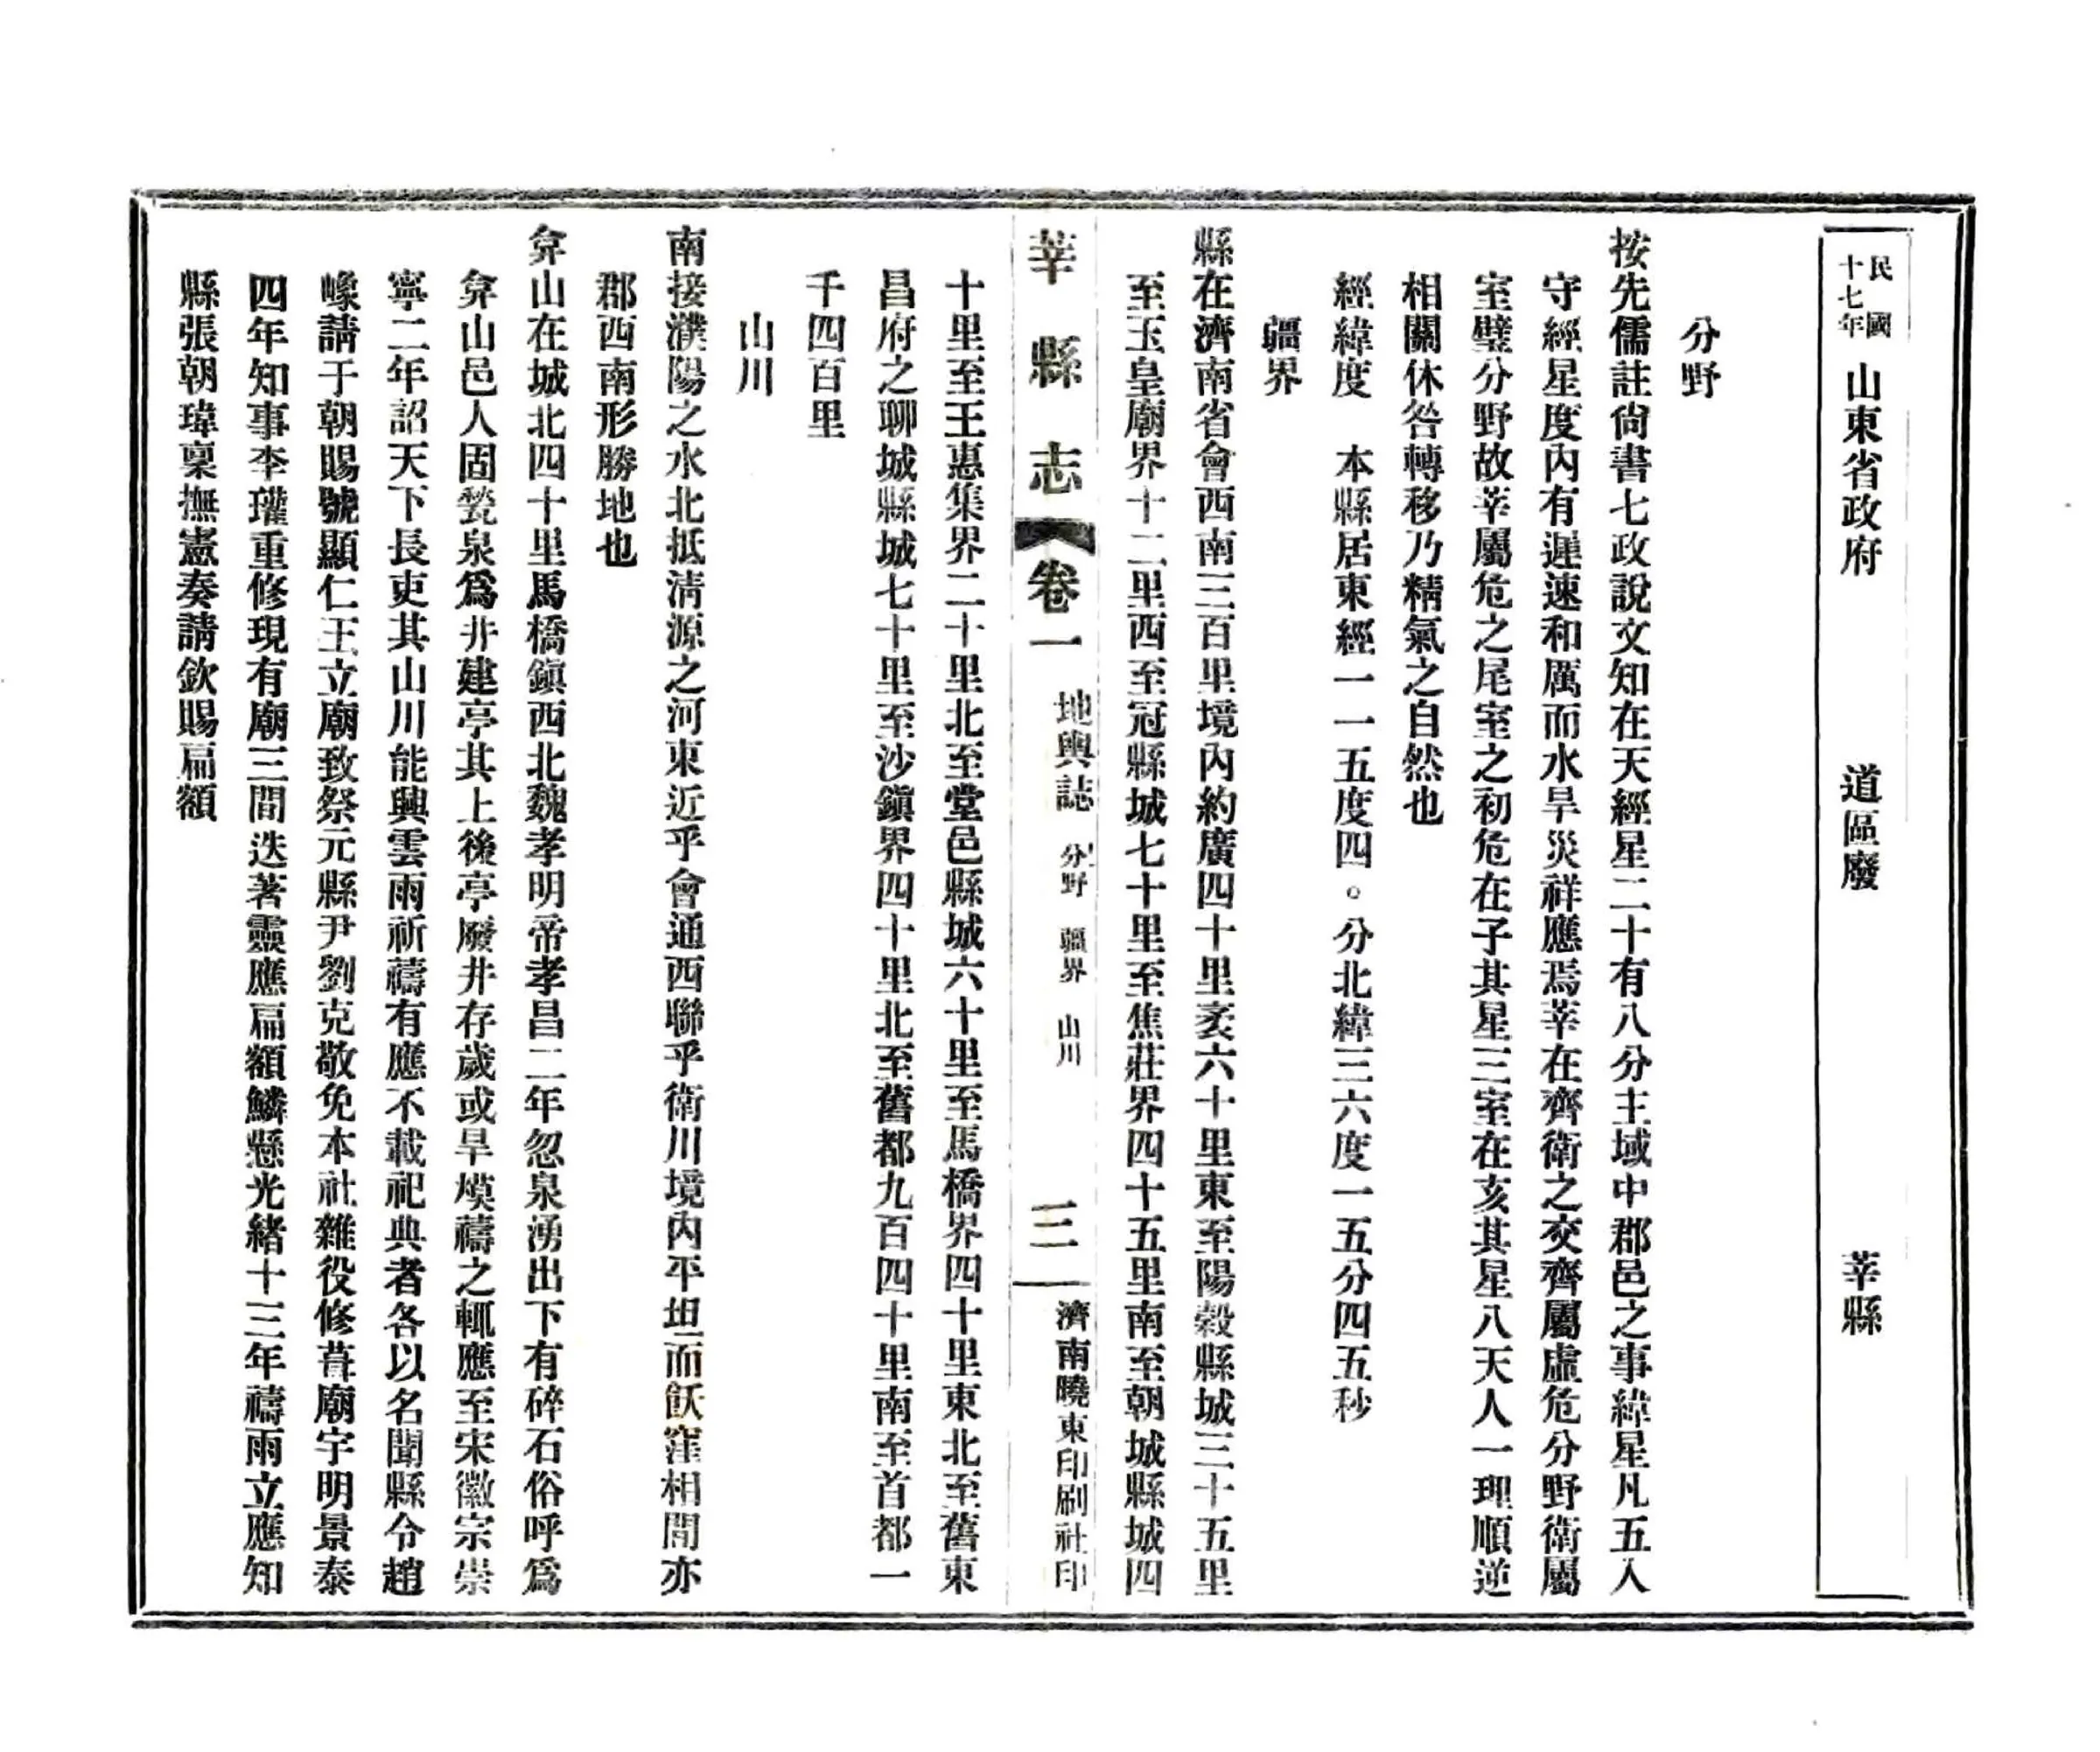 民國十七年 山東省政府 道區廢 莘縣
分野
按先儒註尙書七政說文知在天經星二十有八分主域中郡邑之事緯星凡五入
守經星度內有遲速和厲而水旱災祥應焉莘在齊衛之交齊屬虛危分野衛屬
室璧分野故莘屬危之尾室之初危在子其星三室在亥其星八天人一理順逆
相關休咎轉移乃精氣之自然也
經緯度 本縣居東經一一五度四。分北緯三六度一五分四五秒
疆界
縣在濟南省會西南三百里境內約廣四十里袤六十里東至陽穀縣城三十五里
至玉皇廟界十二里西至冠縣城七十里至焦莊界四十五里南至朝城縣城四
莘縣志 卷一 地輿誌 分野 疆界 山川 三 濟南曉東印刷社印
十里至王惠集界二十里北至堂邑縣城六十里至馬橋界四十里東北至舊東
昌府之聊城縣城七十里至沙鎮界四十里北至舊都九百四十里南至首都一
千四百里
山川
南接濮陽之水北抵清源之河東近乎會通西聯乎衛川境內平坦而飫窪相間亦
郡西南形勝地也
弇山在城北四十里馬橋鎮西北魏孝明帝孝昌二年忽泉湧出下有碎石俗呼爲
弇山邑人固甃泉爲井建亭其上後亭廢井存歲或旱熯禱之輒應至宋徽宗崇
寧二年詔天下長吏其山川能興雲雨祈禱有應不載祀典者各以名聞縣令趙
㠖請于朝賜號顯仁王立廟致祭元縣尹劉克敬免本社雜役修葺廟宇明景泰
四年知事李瓘重修現有廟三間迭著靈應扁額鱗懸光緒十三年禱雨立應知
縣張朝瑋稟撫憲奏請欽賜扁額